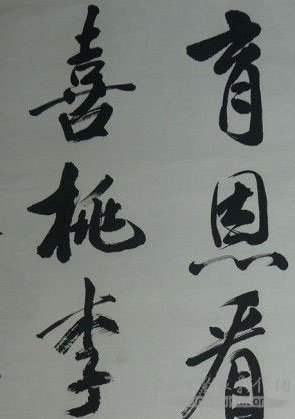 育恩看
喜桃李